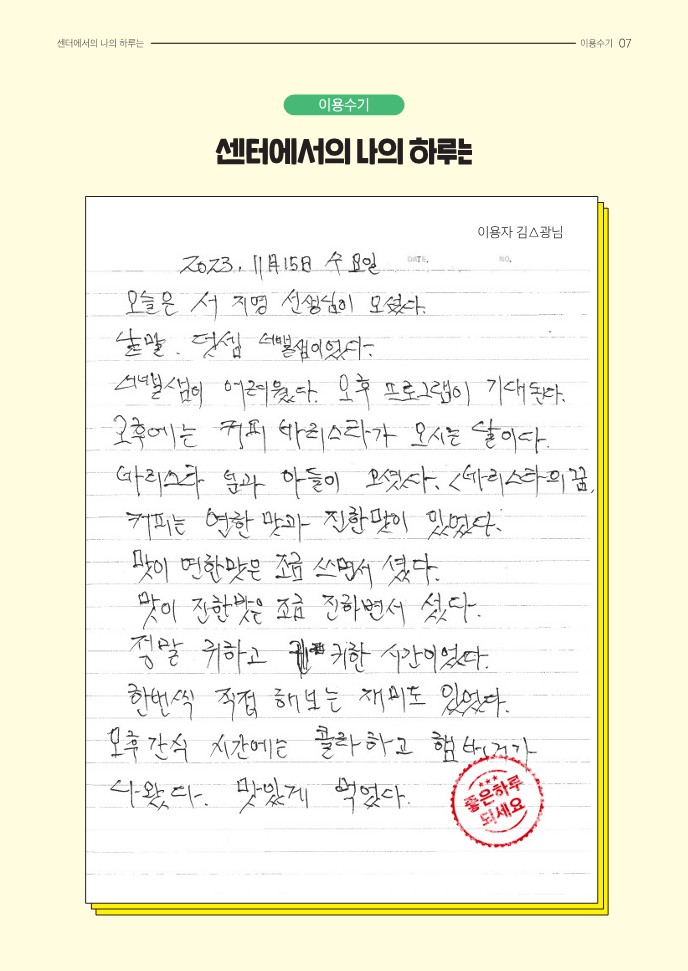 센터에서의 나의 하루는
이용수기 07
이용수기
센터에서의 나의 하루는
이용자 김△광님
DATE. NO.
2023. 11月 15日 수요일
오늘은 서 지명 선생님이 오셨다.
낱말. 덧셈 이었다.
어려웠다. 오후 프로그램이 기대 된다.
오후에는 커피 바리스타가 오시는 날이다.
바리스타 분과 아들이 오셨다. <바리스타의 꿈,
커피는 연한 맛과 진한맛이 있었다.
맛이 연한맛은 조금 쓰면서 셨다.
맛이 진한맛은 조금 진하면서 섰다.
정말 귀하고 귀한 시간이었다.
한번씩 직접 해보는 재미도 있었다.
오후 간식 시간에는 콜라하고 햄버거가
나왔다. 맛있게 먹었다.
좋은하루
되세요